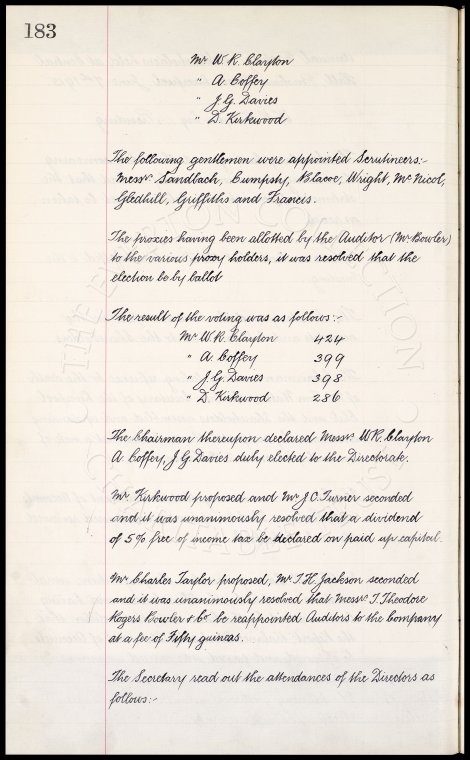 183
Mr W. R. Clayton
" A. Coffey
" J. G. Davies
" D. Kirkwood
The following gentlemen were appointed Scrutineers:-
Messrs. Sandbach, Cumpsty, Blacoe, Wright, Mc Nicol,
Gledhill, Griffiths and Francis.
The proxies having been allotted by the Auditor (Mr Bowler)
to the various proxy holders, it was resolved that the
election be by ballot
The result of the voting was as follows:-
Mr W. R. Clayton 424
" A. Coffey 399
" J. G. Davies 398
" D. Kirkwood 286
The Chairman thereupon declared Messrs. W R. Clayton
A. Coffey, J G. Davies duly elected to the Directorate.
Mr Kirkwood proposed and Mr J. C. Turner seconded
and it was unanimously resolved that a dividend
of 5% free of income tax be declared on paid up capital.
Mr Charles Taylor proposed, Mr T. H. Jackson seconded
and it was unanimously resolved that Messrs T. Theodore
Rogers Bowler & Co be reappointed Auditors to the Company
at a fee of Fifty guineas.
The Secretary read out the attendances of the Directors as
follows:-